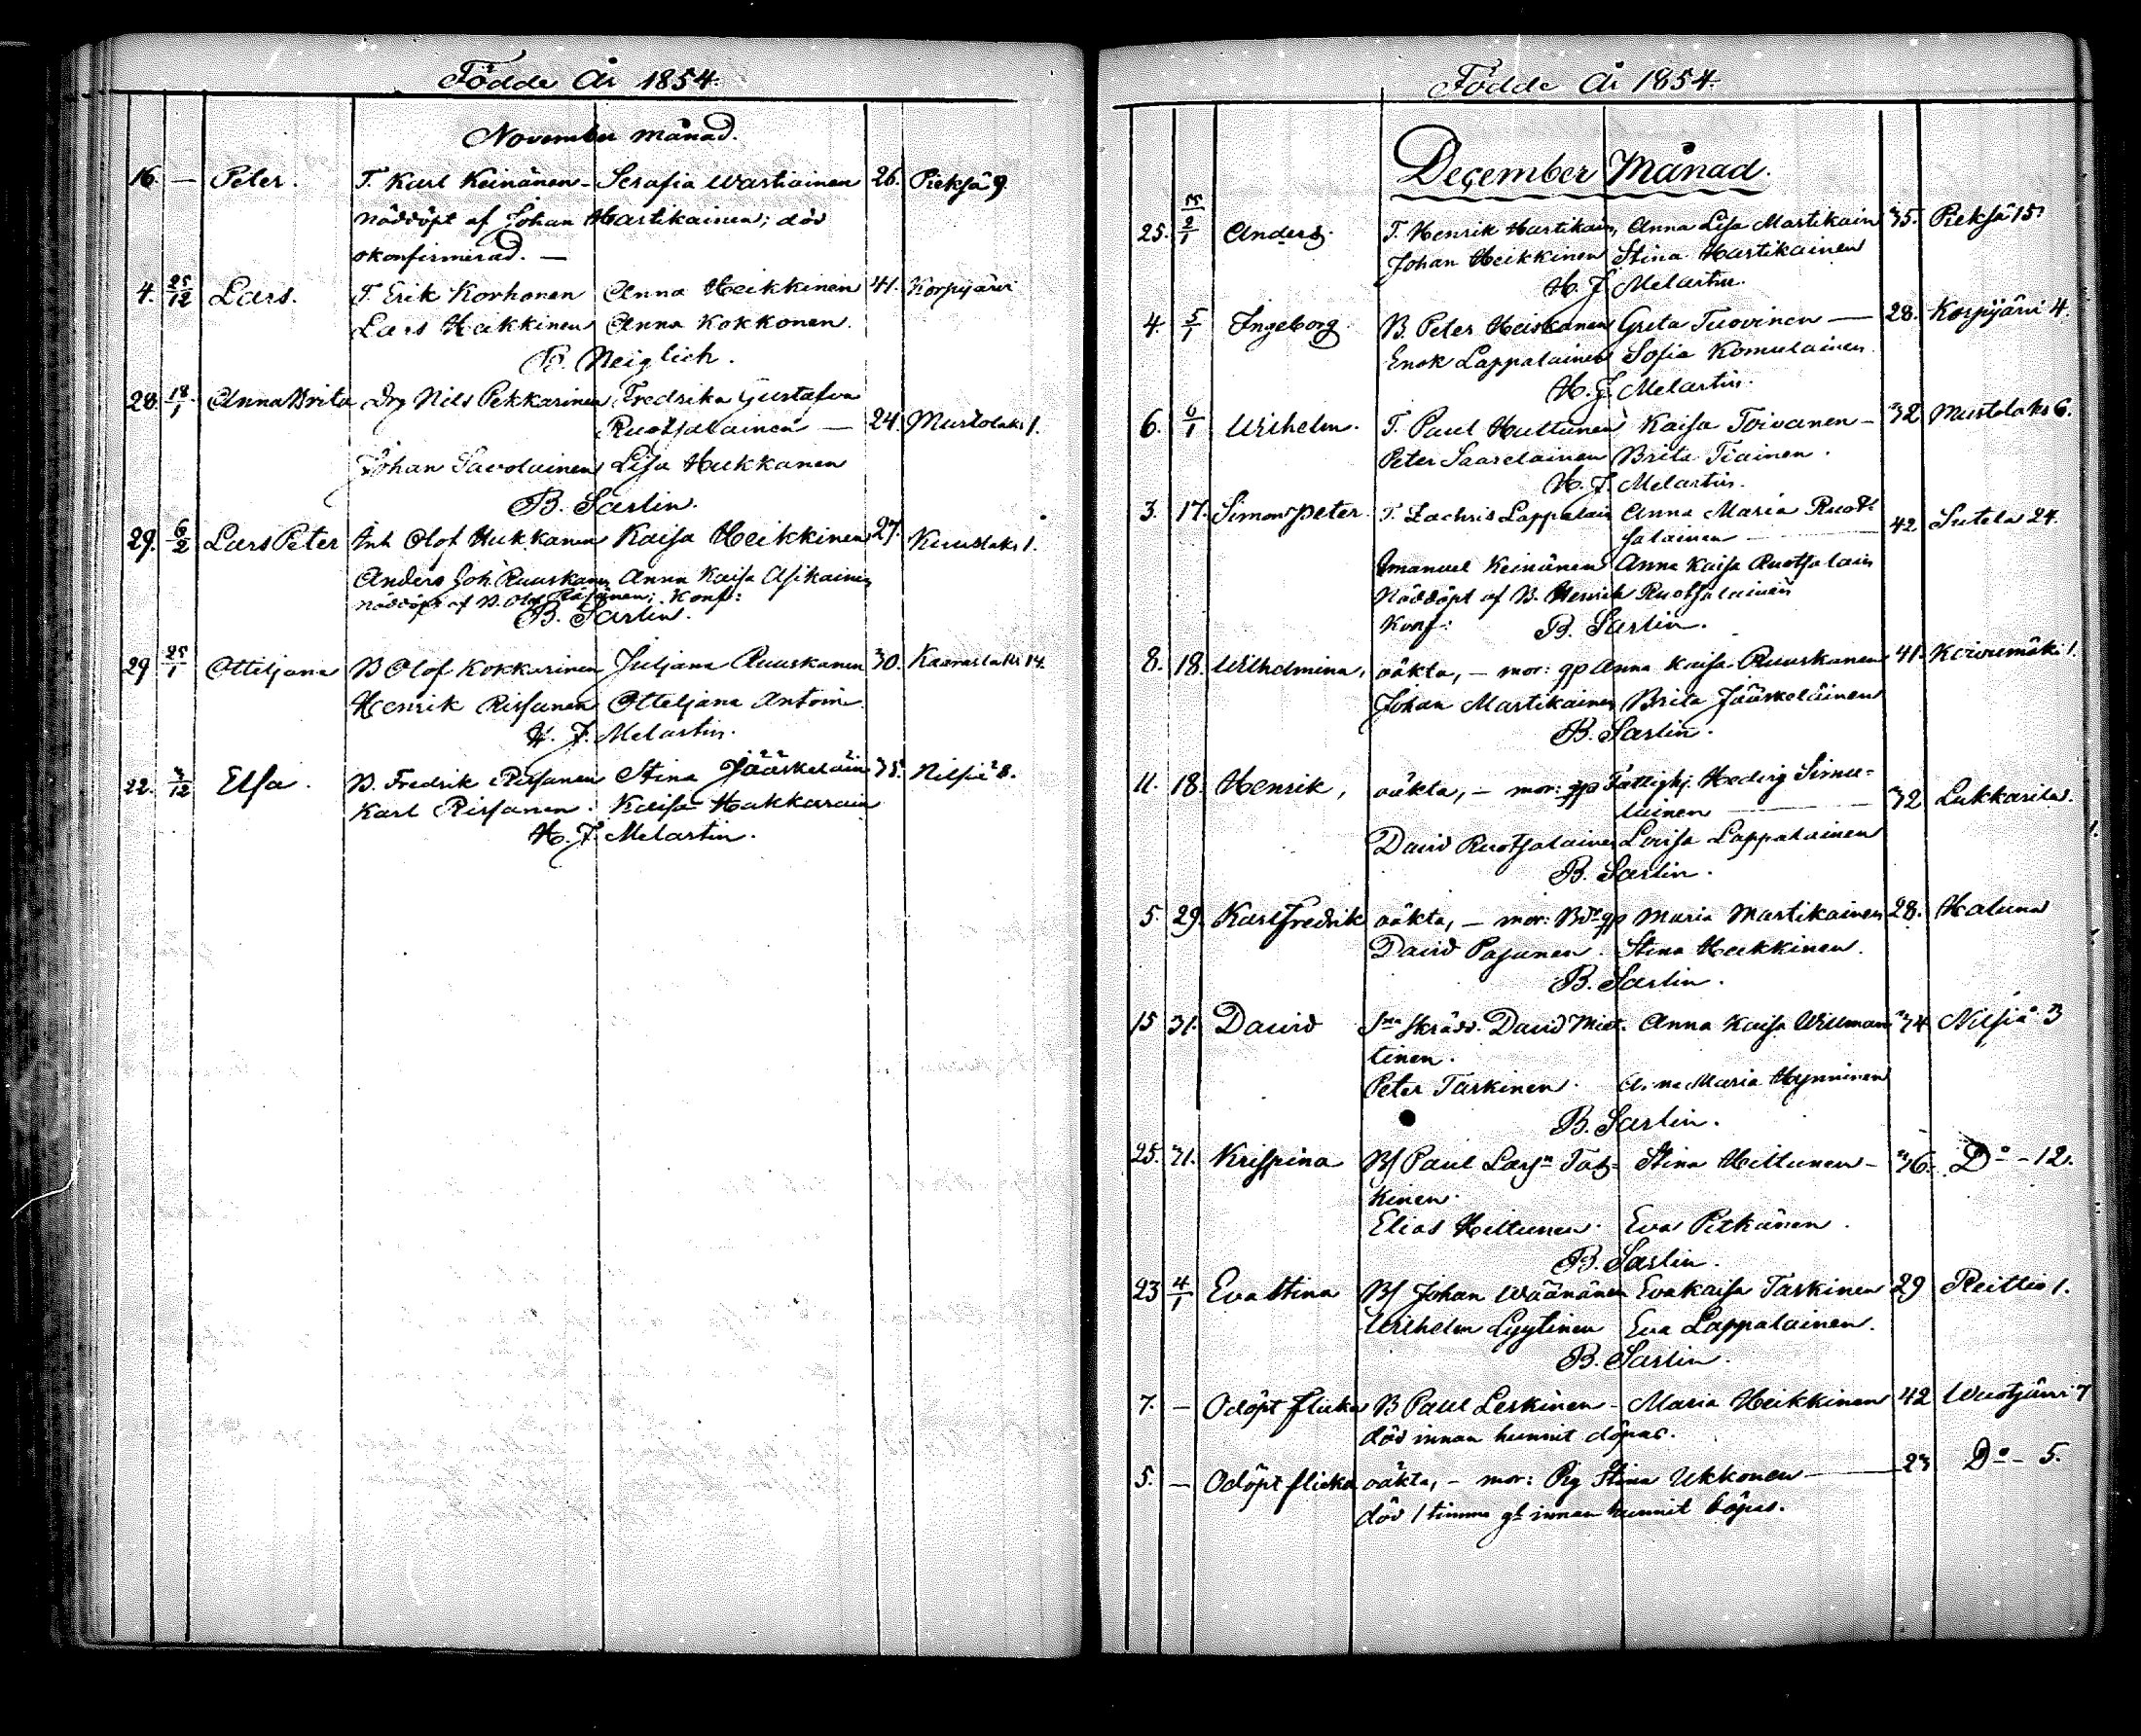 Födde År 1854.
November månad.
16. — Peter. T. Karl Keinänen - Serafia Wartiainen 26. Pieksä 9.
Nöddöpt af Johan Hartikainen; död
okonfirmerad. —
4. 25/12 Lars. T. Erik Korhonen Anna Heikkinen 41. Korpijärvi
Lars Heikkinen Anna Kokkonen.
B. Neiglich.
28. 18/1 Anna Brita Drg Nils Pekkarinen Fredrika Gustafva
Ruotsalainen — 24. Mustolaks 1.
Johan Savolainen Lisa Hukkanen
B. Sarlin.
29. 6/2 Lars Peter Inh Olof Hukkanen Kaisa Heikkinen 27. Kuuslaks 1.
Anders Joh Ruuskanen Anna Kaisa Asikainen
Nöddöpt af B. Olof Räsänen; Konf:
B. Sarlin.
29 25/1 Otteljana B Olof Kokkarinen Juljana Ruuskanen 30. Kaaraslaks 14.
Henrik Rissanen Otteljana Antoin
H. J. Melartin.
22. 3/12 Elsa. B. Fredrik Rissanen Stina Jääskeläin 35. Nilsiä 8.
Karl Rissanen. Kaisa Hakkarain
H. J. Melartin.
Födde År 1854.
December Månad.
25. 2/1 Anders. T. Henrik Hartikain, Anna Lisa Martikain 35. Pieksä 15.
Johan Heikkinen Stina Hartikainen
H. J. Melartin.
4. 5/1 Ingeborg. B. Peter Heiskanen Greta Tuovinen — 28. Korpijärvi 4.
Enok Lappalainen Sofia Komulainen.
H. J. Melartin.
6. 6/1 Wilhelm. T. Paul Huttunen Kaisa Toivanen - 32 Mustolaks 6.
Peter Saarelainen Brita Tiainen.
H. J. Melartin.
3. 17. Simon Peter. T. Zachris Lappalain Anna Maria Ruot-
salainen — 42. Sutela 24.
Imanuel Keinänen Anna Kaisa Ruotsalain
Nöddöpt af B. Henrik Ruotsalainen
Konf: B. Sarlin.
8. 18. Wilhelmina, oäkta, — mor: qp Anna Kaisa Ruuskanen 41. Koivumäki 1.
Johan Martikainen Brita Jääskeläinen
B. Sarlin.
11. 18. Henrik, oäkta, — mor: Fattighj. Hedvig Simu-
lainen — 32 Lukkarila.
David Ruotsalainen Lovisa Lappalainen
B. Sarlin.
5. 29. Karl Fredrik oäkta, — mor: Bdr qp Maria Martikainen 28. Haluna
David Pajunen. Stina Heikkinen.
B. Sarlin.
15 31. David Sn Skrädd. David Miet- Anna Kaisa Willman 34 Nilsiä 3
tinen.
Peter Tarkinen. Anna Maria Hynninen
B. Sarlin.
25. 31. Krispina B/ Paul Larsn Tas- Stina Hiltunen - 36. Do - 12.
kinen.
Elias Hiltunen. Eva Pitkänen.
B. Sarlin.
23 4/1 Eva Stina B/ Johan Wäänänen Eva Kaisa Taskinen 29 Reittio 1.
Wilhelm Lyytinen Eva Lappalainen.
B. Sarlin.
7. — Odöpt flicka B Paul Leskinen - Maria Heikkinen 42 Wuotjärvi 7
död innan hunnit döpas.
5. — Odöpt flicka oäkta, — mor: Pig Stina Ukkonen — 23 Do - 5.
död 1 timme gl innan hunnit döpas.